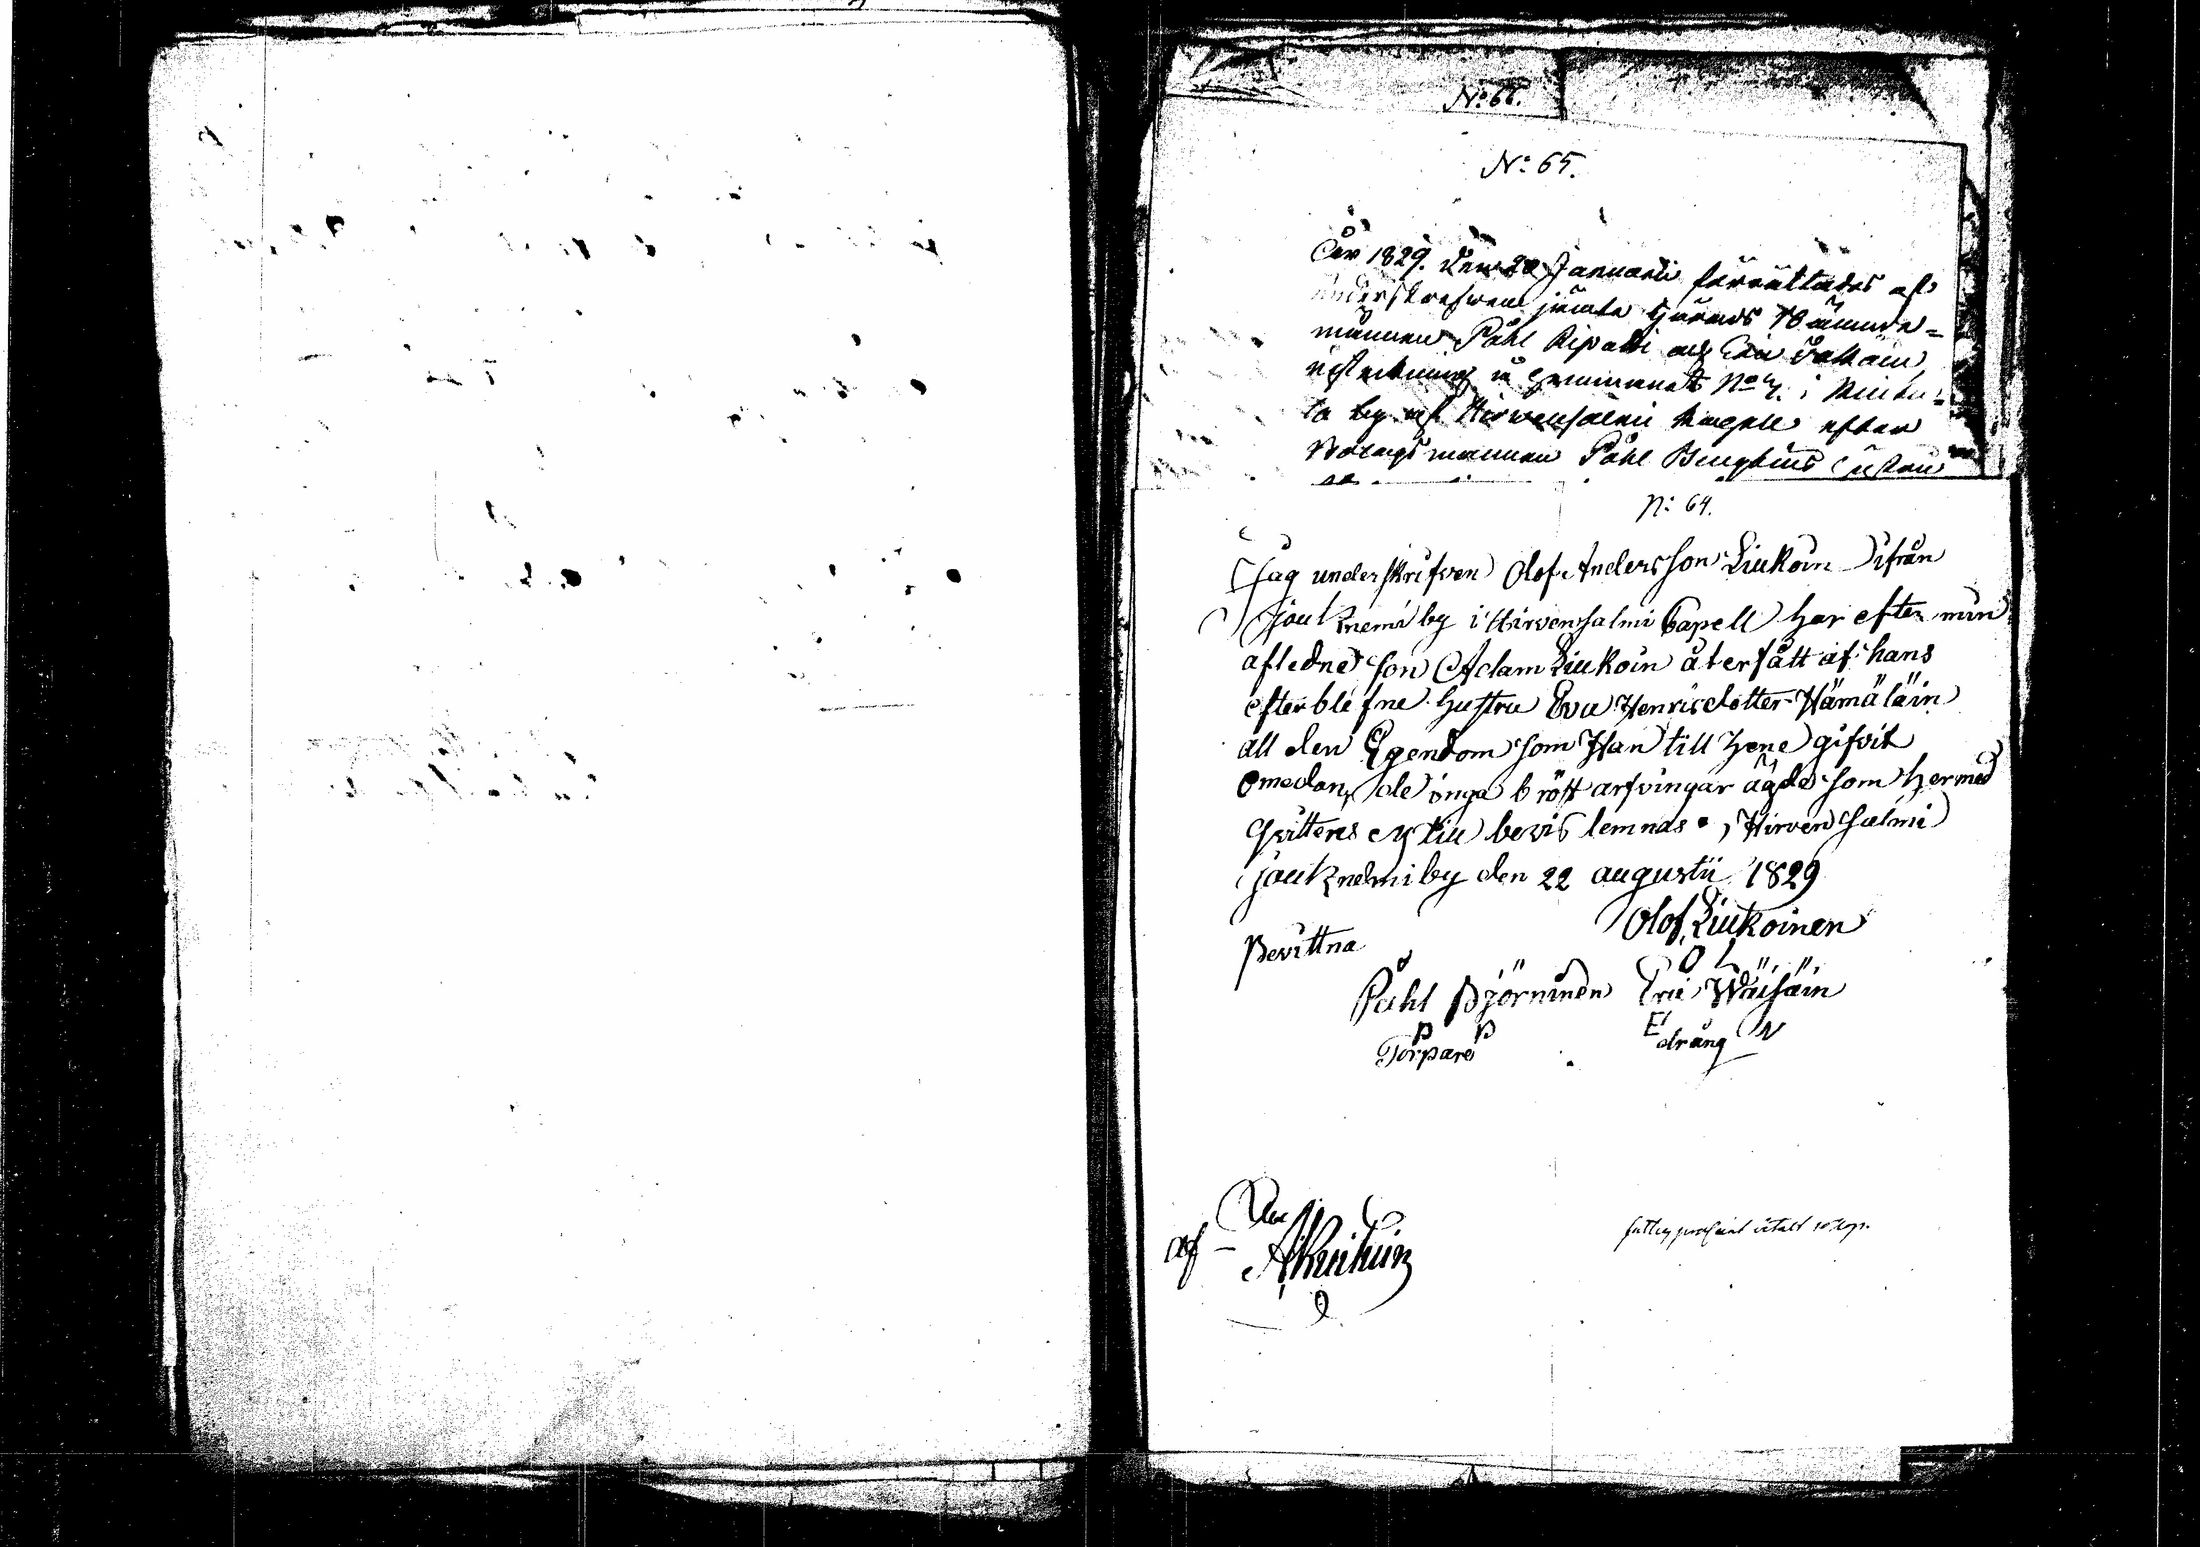 No: 66.
No: 65.
År 1829. den 20 Januarii förrättades af
underskrefwen jämte Härads Nämnde=
männen Påhl Ripatti och Eric
värdering å hemmanet No 7. i
ta by af Hirvensalmi Capell efter
Bolagsmannen Påhl
N: 64.
Jag underskrifven Olof Andersson Liukoin ifrån
jouknemi by i Hirvensalmi Capell har efter min
afledne son Adam Liukoin återfått af hans
efterblefne hustru Eva Henricsdotter Hämäläin
all den Egendom som Han till hene gifvit
Omedan de inga bröst arfvingar ägde som hermed
qvitteras och till bevis lemnas, Hirvensalmi
jouknemi by den 22 augustii 1829
Olof Liukoinen
O L
Bevittna
Påhl Björninen Eric Wäisäin
P B E W
Torpare dräng
af